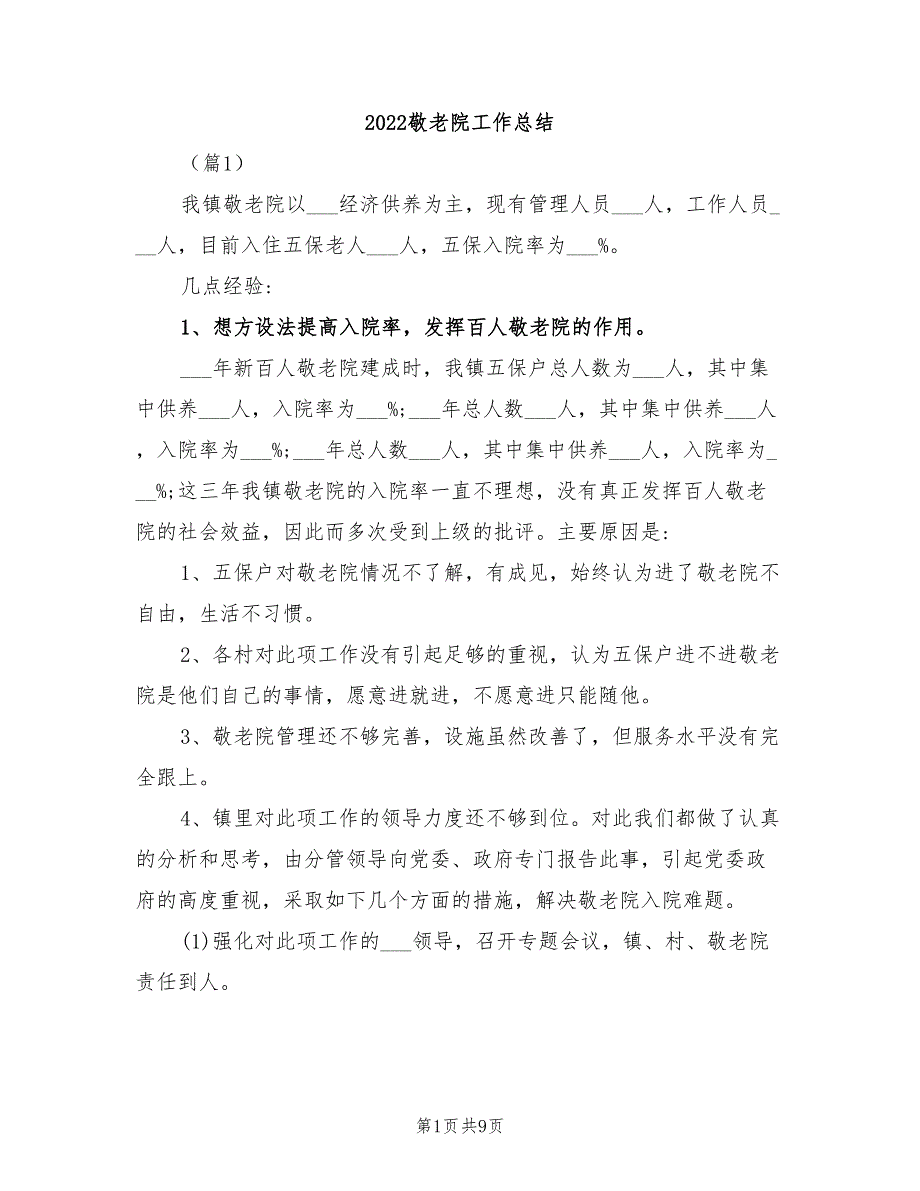 2022敬老院工作总结
（篇1）
我镇敬老院以___经济供养为主，现有管理人员___人，工作人员_
__人，目前入住五保老人___人，五保入院率为___%。
几点经验:
1、想方设法提高入院率，发挥百人敬老院的作用。
___年新百人敬老院建成时，我镇五保户总人数为___人，其中集
中供养___人，入院率为___%;___年总人数___人，其中集中供养___人
，入院率为___%;___年总人数___人，其中集中供养___人，入院率为_
__%;这三年我镇敬老院的入院率一直不理想，没有真正发挥百人敬老
院的社会效益，因此而多次受到上级的批评。主要原因是:
1、五保户对敬老院情况不了解，有成见，始终认为进了敬老院不
自由，生活不习惯。
2、各村对此项工作没有引起足够的重视，认为五保户进不进敬老
院是他们自己的事情，愿意进就进，不愿意进只能随他。
3、敬老院管理还不够完善，设施虽然改善了，但服务水平没有完
全跟上。
4、镇里对此项工作的领导力度还不够到位。对此我们都做了认真
的分析和思考，由分管领导向党委、政府专门报告此事，引起党委政
府的高度重视，采取如下几个方面的措施，解决敬老院入院难题。
(1)强化对此项工作的___领导，召开专题会议，镇、村、敬老院
责任到人。
第1页共9页